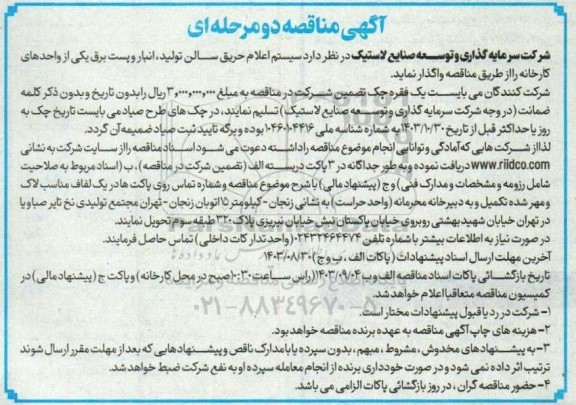 آگهی مناقصه دو مرحله ای
شرکت سرمایه گذاری و توسعه صنایع لاستیک در نظر دارد سیستم اعلام حریق سالن تولید، انبار و پست برق یکی از واحدهای
کارخانه را از طریق مناقصه واگذار نماید.
شرکت کنندگان می بایست یک فقره چک تضمین شرکت در مناقصه به مبلغ ۳,۰۰۰,۰۰۰,۰۰۰ ریال را بدون تاریخ و بدون ذکر کلمه
ضمانت (در وجه شرکت سرمایه گذاری و توسعه صنایع لاستیک) تسلیم نمایند، در چک های طرح صیاد می بایست تاریخ چک به
روز یا حداکثر قبل از تاریخ ۱۴۰۳/۱۰/۳۰ به شماره شناسه ملی ۱۰۴۶۰۱۰۴۴۱۶ بوده و برگه تایید ثبت صیاد ضمیمه آن گردد.
لذا از شرکت هایی که آمادگی و توانایی انجام موضوع مناقصه را داشته دعوت می شود اسناد مناقصه را از سایت شرکت به نشانی
www.riidco.com دریافت نموده و به طور جداگانه در ۳ پاکت در بسته الف (تضمین شرکت در مناقصه)، ب (اسناد مربوط به صلاحیت
شامل رزومه و مشخصات و مدارک فنی) و ج (پیشنهاد مالی) با شرح موضوع مناقصه و شماره تماس روی پاکت ها در یک لفاف مناسب لاک
و مهر شده تکمیل و به دبیرخانه محرمانه (واحد حراست) به نشانی زنجان - کیلومتر ۱۵ اتوبان زنجان - تهران مجتمع تولیدی نخ تایر صبا و یا
در تهران خیابان شهید بهشتی روبروی خیابان پاکستان نبش خیابان نیریزی پلاک ۳۲۰ طبقه سوم تحویل نمایند.
در صورت نیاز به اطلاعات بیشتر با شماره تلفن ۰۲۴۳۲۴۶۴۴۷۴ (واحد تدارکات داخلی) تماس حاصل فرمایند.
آخرین مهلت ارسال اسناد پیشنهادات (پاکات الف، ب و ج) ۱۴۰۳/۰۸/۳۰
تاریخ بازگشائی پاکات اسناد مناقصه الف و ب ۱۴۰۳/۰۹/۰۴ (راس ساعت ۱۰:۳۰ صبح در محل کارخانه) و پاکت ج (پیشنهاد مالی) در
کمیسیون مناقصه متعاقبا اعلام خواهد شد.
۱- شرکت در رد یا قبول پیشنهادات مختار است.
۲- هزینه های چاپ آگهی مناقصه به عهده برنده مناقصه خواهد بود.
۳- به پیشنهادهای مخدوش، مشروط، مبهم، بدون سپرده یا با مدارک ناقص و پیشنهادهایی که بعد از مهلت مقرر ارسال شوند
ترتیب اثر داده نمی شود و در صورت خودداری برنده از انجام معامله سپرده او به نفع شرکت ضبط خواهد شد.
۴- حضور مناقصه گران، در روز بازگشائی پاکات الزامی می باشد.
ParsNamadData
۰۲۱-۸۸۳۴۹۶۷۰-۵